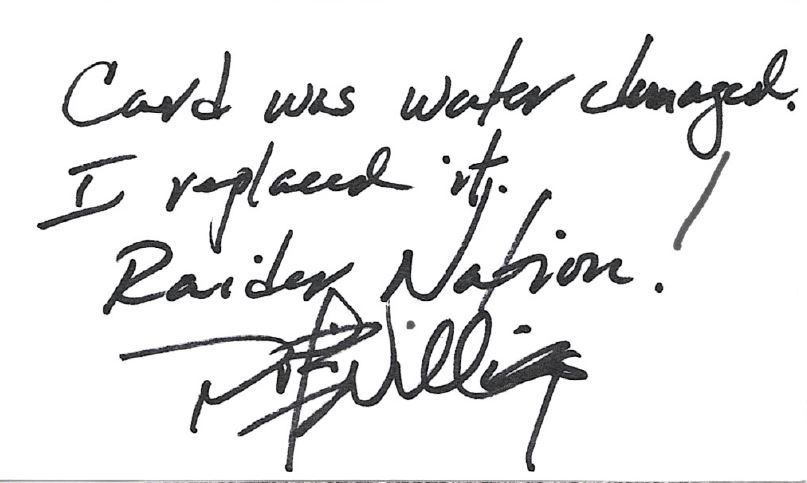 Card was water damaged.
I replaced it.
Raider Nation!